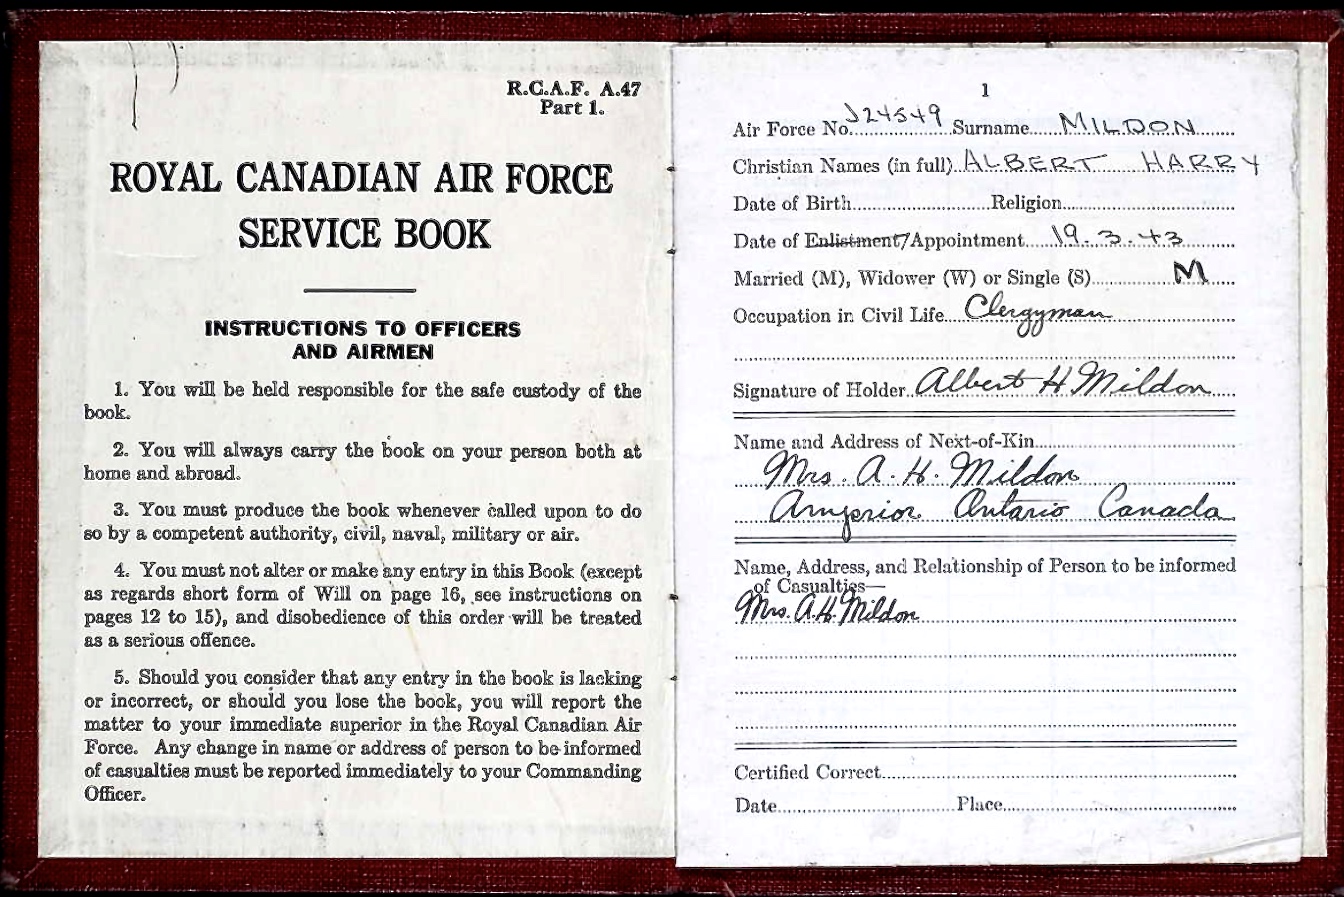 R.C.A.F. A.47
Part 1.
ROYAL CANADIAN AIR FORCE
SERVICE BOOK
INSTRUCTIONS TO OFFICERS
AND AIRMEN
1. You will be held responsible for the safe custody of the
book.
2. You will always carry the book on your person both at
home and abroad.
3. You must produce the book whenever called upon to do
so by a competent authority, civil, naval, military or air.
4. You must not alter or make any entry in this Book (except
as regards short form of Will on page 16, see instructions on
pages 12 to 15), and disobedience of this order will be treated
as a serious offence.
5. Should you consider that any entry in the book is lacking
or incorrect, or should you lose the book, you will report the
matter to your immediate superior in the Royal Canadian Air
Force. Any change in name or address of person to be informed
of casualties must be reported immediately to your Commanding
Officer.
1
Air Force No. J24549 Surname MILDON
Christian Names (in full) ALBERT HARRY
Date of Birth Religion
Date of Enlistment/Appointment 19.3.43
Married (M), Widower (W) or Single (S) M
Occupation in Civil Life Clergyman
Signature of Holder Albert H Mildon
Name and Address of Next-of-Kin
Mrs. A. H. Mildon
Arnprior Ontario Canada
Name, Address, and Relationship of Person to be informed
of Casualties—
Mrs. A. H. Mildon
Certified Correct
Date Place